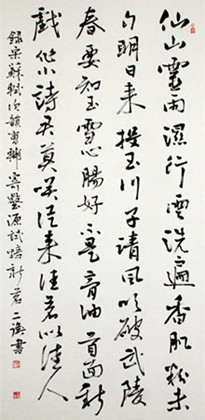 仙山靈雨濕行雲洗遍香肌粉未
勻明月來投玉川子清風吹破武陵
春要知玉雪心腸好不是膏油首面新
戲作小詩君莫笑從來佳茗似佳人
錄宋蘇軾次韻曹輔寄壑源試焙新茗 書